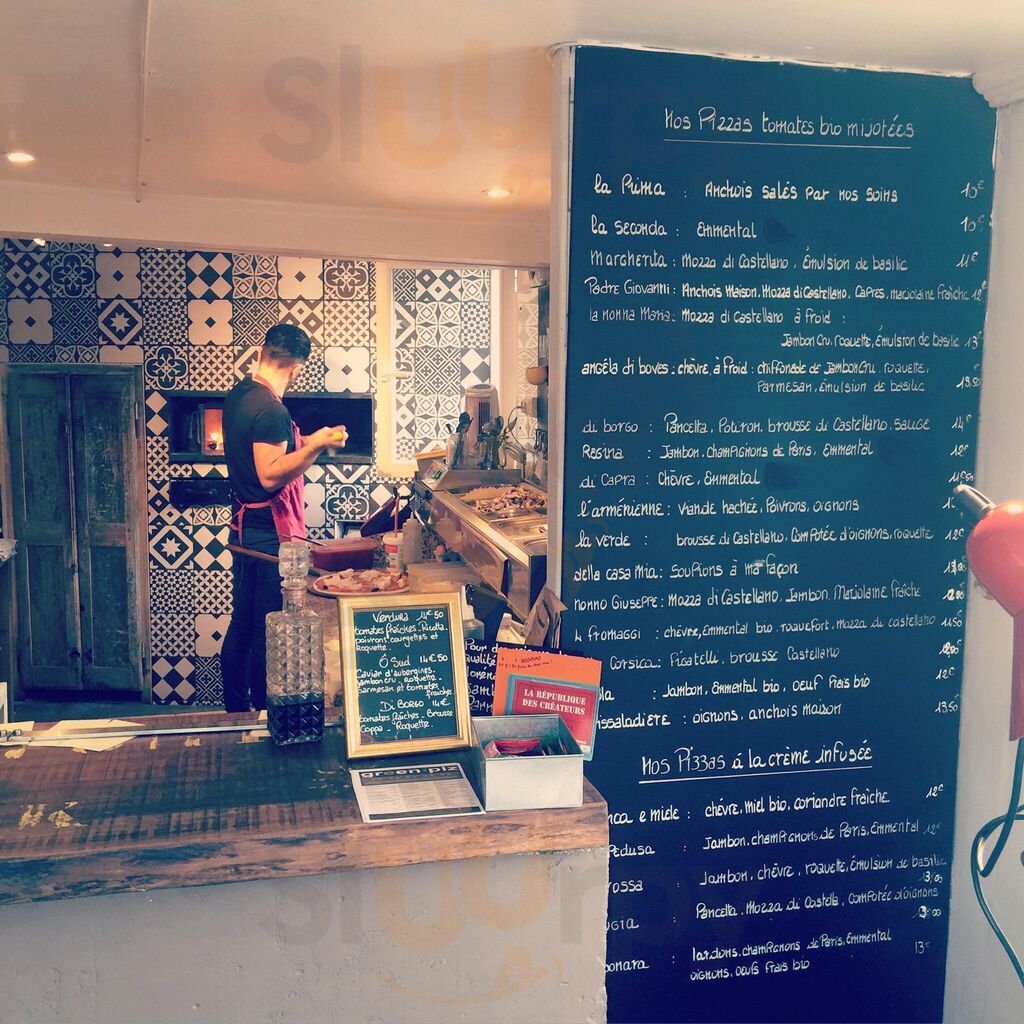 Nos Pizzas tomates bio mijotées
la Prima : Anchois salés par nos soins 10€
la seconda : Emmental 10€
Margherita : Mozza di Castellano, Émulsion de basilic 11€
Padre Giovanni : Anchois Maison, Mozza di Castellano, Capres, marjolaine fraîche 12€
la nonna Maria : Mozza di Castellano à froid :
Jambon cru, roquette, Émulsion de basilic 13€
angéla di boves : chèvre, à froid : chiffonade de Jambon cru, roquette,
Parmesan, émulsion de basilic 13,50
di borgo : Pancetta, Potiron, brousse di Castellano, sauge 14€
Regina : Jambon, champignons de Paris, Emmental 12€
di Capra : Chèvre, Emmental 11€50
l'arménienne : Viande hachée, Poivrons, oignons
la verde : brousse di Castellano, Compotée d'oignons, roquette 12€
della casa Mia : Soupions à ma façon
nonno Giuseppe : Mozza di Castellano, Jambon, Marjolaine fraîche
4 fromaggi : chèvre, Emmental bio, roquefort, mozza di castellano
Corsica : Figatelli, brousse Castellano
la : Jambon, Emmental bio, oeuf frais bio 12€
issaladière : oignons, anchois maison 13,50
Nos Pizzas à la crème infusée
nca e miele : chévre, miel bio, coriandre fraîche 12€
Pedusa : Jambon, champignons de Paris, Emmental 12€
rossa : Jambon, chévre, roquette, émulsion de basilic
13,00
ugia : Pancetta, Mozza di Castella, Compotée d'oignons
13,00
onara : lardons, champignons de Paris, Emmental
oignons, oeufs frais bio 13€
Verdura 14€50
tomates fraîches, Ricotta
poivrons, courgettes et
Roquette
Ô Sud 14€50
Caviar d'aubergines
Jambon cru, Roquette
Parmesan et tomates
fraîches
Di Borgo 14€
tomates fraîches, Brousse
Coppa, Roquette
Pour
LA RÉPUBLIQUE
DES CRÉATEURS
green piz
sluurpy
sluurpy